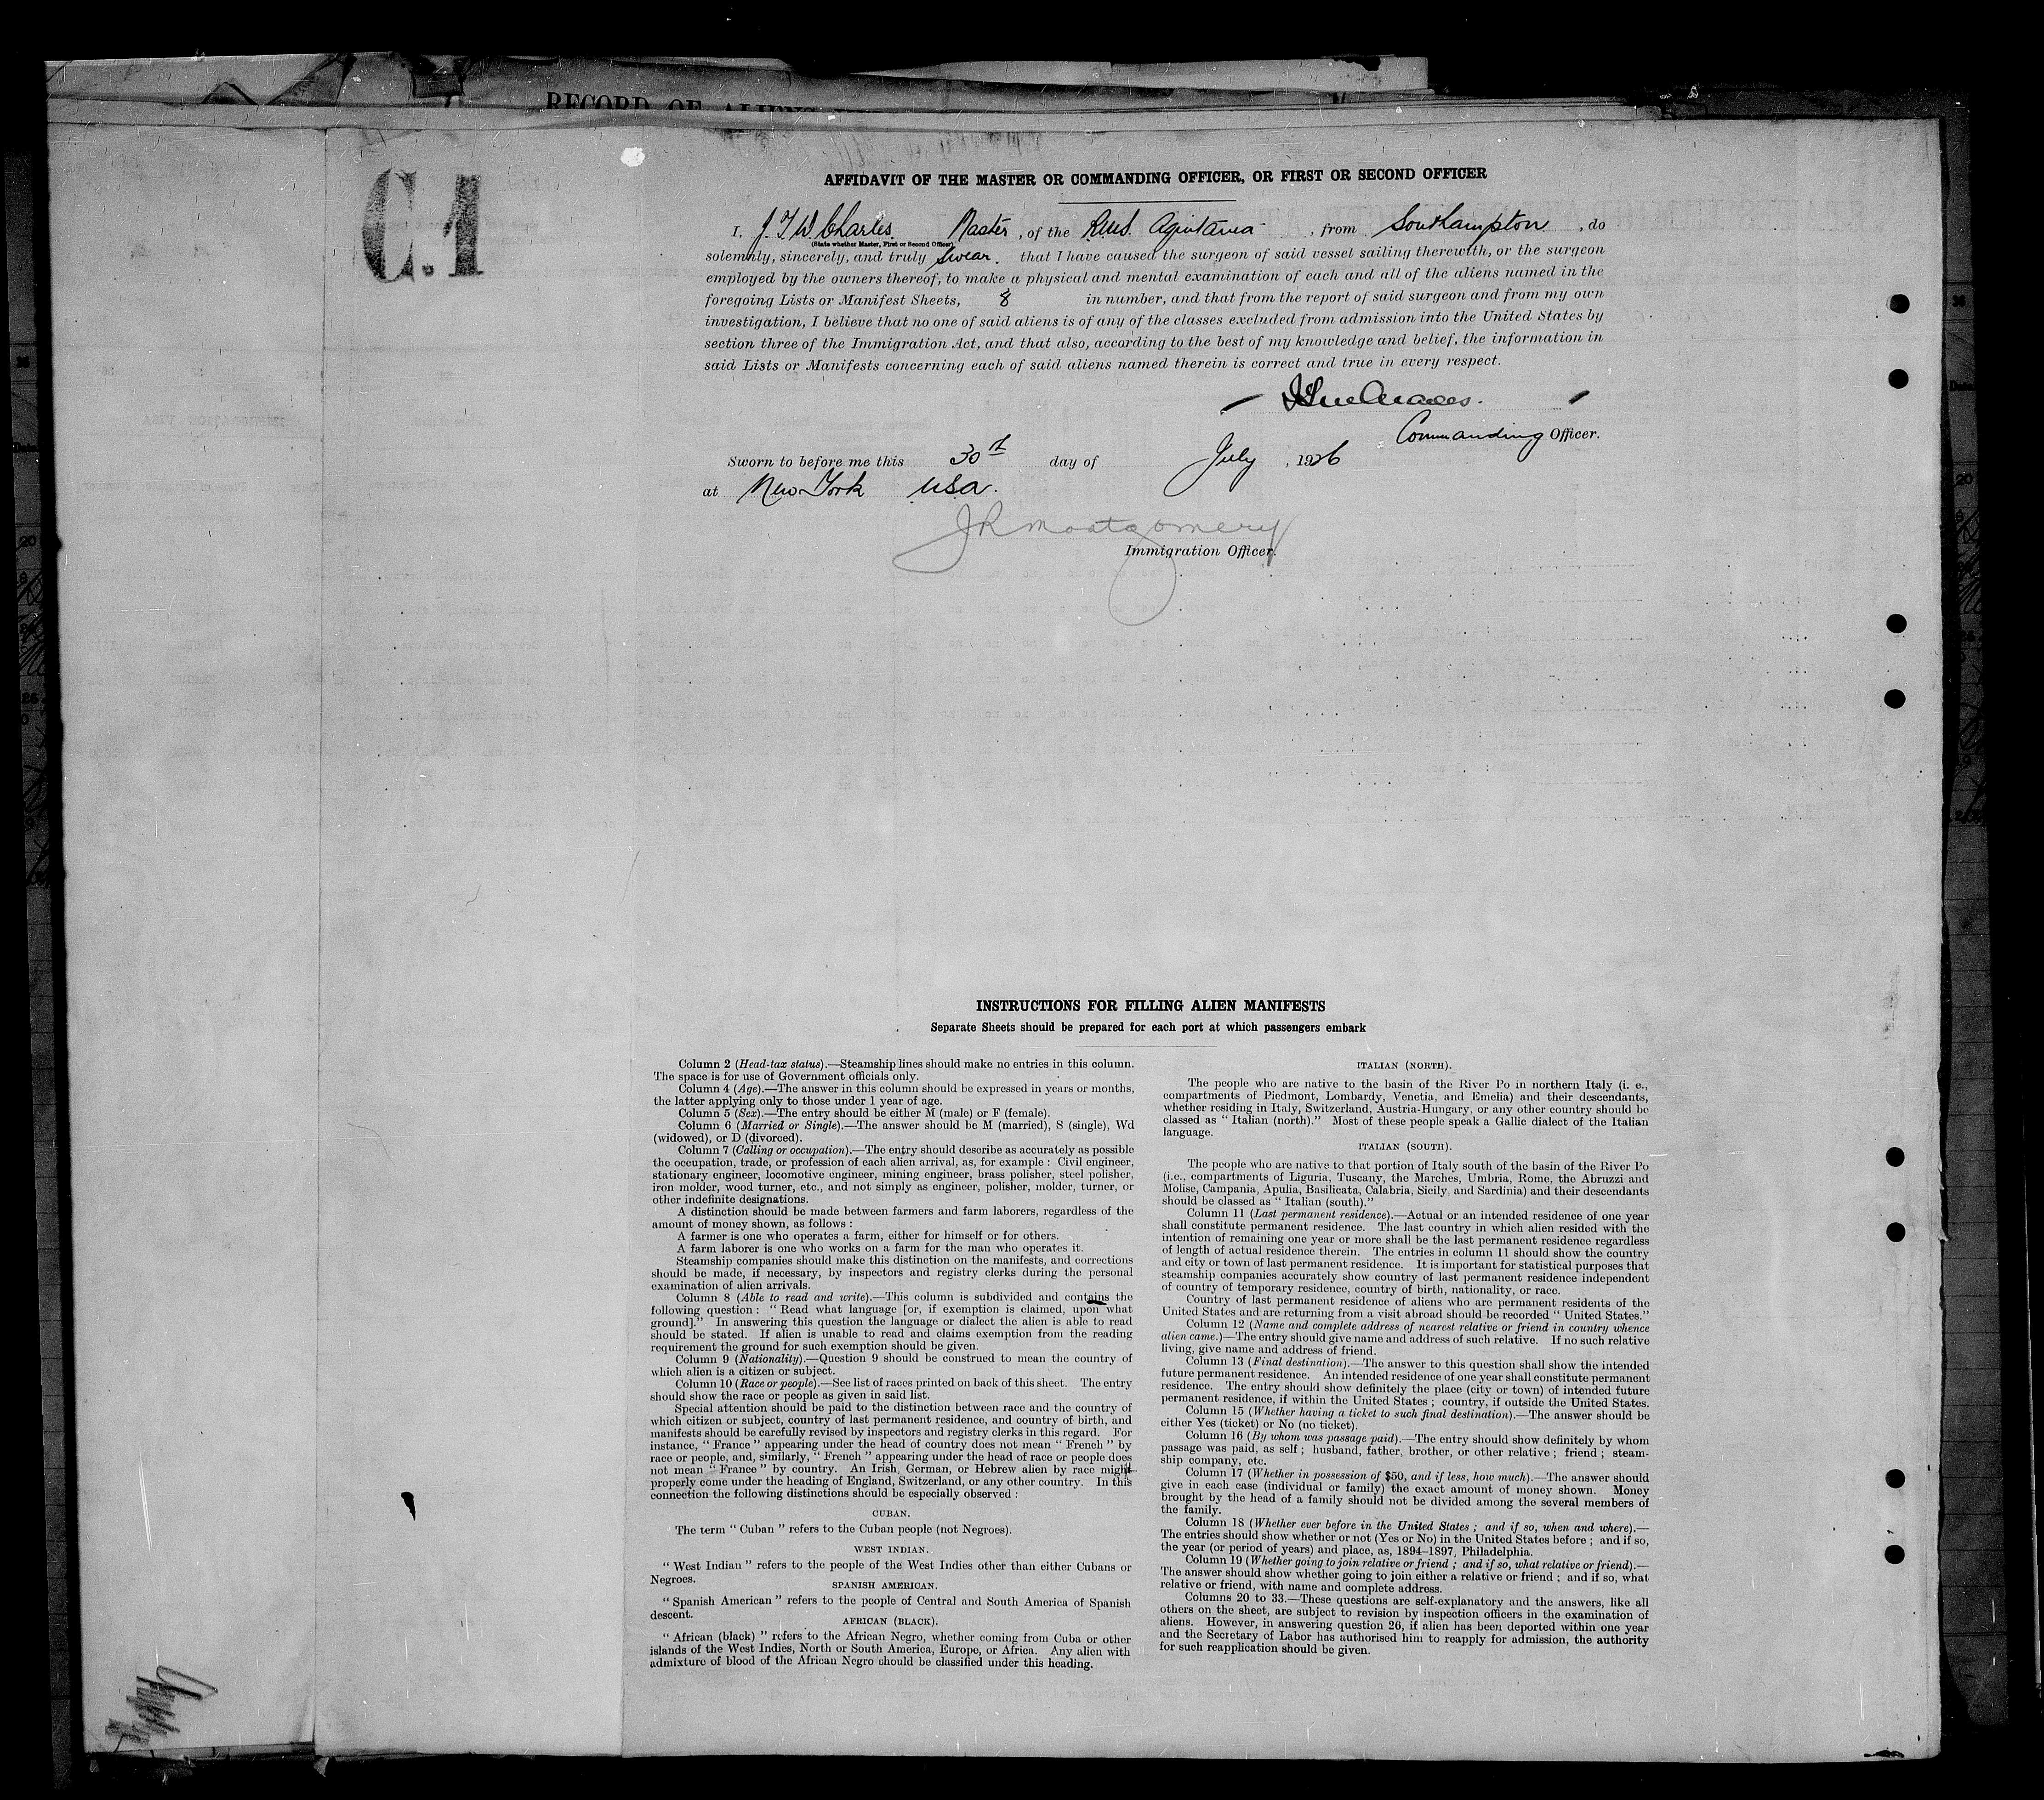 RECORD OF ALIENS
C.1
AFFIDAVIT OF THE MASTER OR COMMANDING OFFICER, OR FIRST OR SECOND OFFICER
I, J. T. W. Charles. Master, of the R.M.S. Aquitania, from Southampton, do
(State whether Master, First or Second Officer)
solemnly, sincerely, and truly swear. that I have caused the surgeon of said vessel sailing therewith, or the surgeon
employed by the owners thereof, to make a physical and mental examination of each and all of the aliens named in the
foregoing Lists or Manifest Sheets, 8 in number, and that from the report of said surgeon and from my own
investigation, I believe that no one of said aliens is of any of the classes excluded from admission into the United States by
section three of the Immigration Act, and that also, according to the best of my knowledge and belief, the information in
said Lists or Manifests concerning each of said aliens named therein is correct and true in every respect.
Commanding Officer.
Sworn to before me this 30th day of July, 1926
at New York U.S.A.
J R Montgomery
Immigration Officer.
INSTRUCTIONS FOR FILLING ALIEN MANIFESTS
Separate Sheets should be prepared for each port at which passengers embark
Column 2 (Head-tax status).—Steamship lines should make no entries in this column.
The space is for use of Government officials only.
Column 4 (Age).—The answer in this column should be expressed in years or months,
the latter applying only to those under 1 year of age.
Column 5 (Sex).—The entry should be either M (male) or F (female).
Column 6 (Married or Single).—The answer should be M (married), S (single), Wd
(widowed), or D (divorced).
Column 7 (Calling or occupation).—The entry should describe as accurately as possible
the occupation, trade, or profession of each alien arrival, as, for example : Civil engineer,
stationary engineer, locomotive engineer, mining engineer, brass polisher, steel polisher,
iron molder, wood turner, etc., and not simply as engineer, polisher, molder, turner, or
other indefinite designations.
A distinction should be made between farmers and farm laborers, regardless of the
amount of money shown, as follows :
A farmer is one who operates a farm, either for himself or for others.
A farm laborer is one who works on a farm for the man who operates it.
Steamship companies should make this distinction on the manifests, and corrections
should be made, if necessary, by inspectors and registry clerks during the personal
examination of alien arrivals.
Column 8 (Able to read and write).—This column is subdivided and contains the
following question : " Read what language [or, if exemption is claimed, upon what
ground]." In answering this question the language or dialect the alien is able to read
should be stated. If alien is unable to read and claims exemption from the reading
requirement the ground for such exemption should be given.
Column 9 (Nationality).—Question 9 should be construed to mean the country of
which alien is a citizen or subject.
Column 10 (Race or people).—See list of races printed on back of this sheet. The entry
should show the race or people as given in said list.
Special attention should be paid to the distinction between race and the country of
which citizen or subject, country of last permanent residence, and country of birth, and
manifests should be carefully revised by inspectors and registry clerks in this regard. For
instance, " France " appearing under the head of country does not mean " French " by
race or people, and, similarly, " French " appearing under the head of race or people does
not mean " France " by country. An Irish, German, or Hebrew alien by race might
properly come under the heading of England, Switzerland, or any other country. In this
connection the following distinctions should be especially observed :
CUBAN.
The term " Cuban " refers to the Cuban people (not Negroes).
WEST INDIAN.
" West Indian " refers to the people of the West Indies other than either Cubans or
Negroes.
SPANISH AMERICAN.
" Spanish American " refers to the people of Central and South America of Spanish
descent.
AFRICAN (BLACK).
" African (black) " refers to the African Negro, whether coming from Cuba or other
islands of the West Indies, North or South America, Europe, or Africa. Any alien with
admixture of blood of the African Negro should be classified under this heading.
ITALIAN (NORTH).
The people who are native to the basin of the River Po in northern Italy (i. e.,
compartments of Piedmont, Lombardy, Venetia, and Emelia) and their descendants,
whether residing in Italy, Switzerland, Austria-Hungary, or any other country should be
classed as " Italian (north)." Most of these people speak a Gallic dialect of the Italian
language.
ITALIAN (SOUTH).
The people who are native to that portion of Italy south of the basin of the River Po
(i.e., compartments of Liguria, Tuscany, the Marches, Umbria, Rome, the Abruzzi and
Molise, Campania, Apulia, Basilicata, Calabria, Sicily, and Sardinia) and their descendants
should be classed as " Italian (south)."
Column 11 (Last permanent residence).—Actual or an intended residence of one year
shall constitute permanent residence. The last country in which alien resided with the
intention of remaining one year or more shall be the last permanent residence regardless
of length of actual residence therein. The entries in column 11 should show the country
and city or town of last permanent residence. It is important for statistical purposes that
steamship companies accurately show country of last permanent residence independent
of country of temporary residence, country of birth, nationality, or race.
Country of last permanent residence of aliens who are permanent residents of the
United States and are returning from a visit abroad should be recorded " United States."
Column 12 (Name and complete address of nearest relative or friend in country whence
alien came.)—The entry should give name and address of such relative. If no such relative
living, give name and address of friend.
Column 13 (Final destination).—The answer to this question shall show the intended
future permanent residence. An intended residence of one year shall constitute permanent
residence. The entry should show definitely the place (city or town) of intended future
permanent residence, if within the United States ; country, if outside the United States.
Column 15 (Whether having a ticket to such final destination).—The answer should be
either Yes (ticket) or No (no ticket).
Column 16 (By whom was passage paid).—The entry should show definitely by whom
passage was paid, as self ; husband, father, brother, or other relative ; friend ; steam-
ship company, etc.
Column 17 (Whether in possession of $50, and if less, how much).—The answer should
give in each case (individual or family) the exact amount of money shown. Money
brought by the head of a family should not be divided among the several members of
the family.
Column 18 (Whether ever before in the United States ; and if so, when and where).—
The entries should show whether or not (Yes or No) in the United States before ; and if so,
the year (or period of years) and place, as, 1894–1897, Philadelphia.
Column 19 (Whether going to join relative or friend ; and if so, what relative or friend).—
The answer should show whether going to join either a relative or friend ; and if so, what
relative or friend, with name and complete address.
Columns 20 to 33.—These questions are self-explanatory and the answers, like all
others on the sheet, are subject to revision by inspection officers in the examination of
aliens. However, in answering question 26, if alien has been deported within one year
and the Secretary of Labor has authorised him to reapply for admission, the authority
for such reapplication should be given.